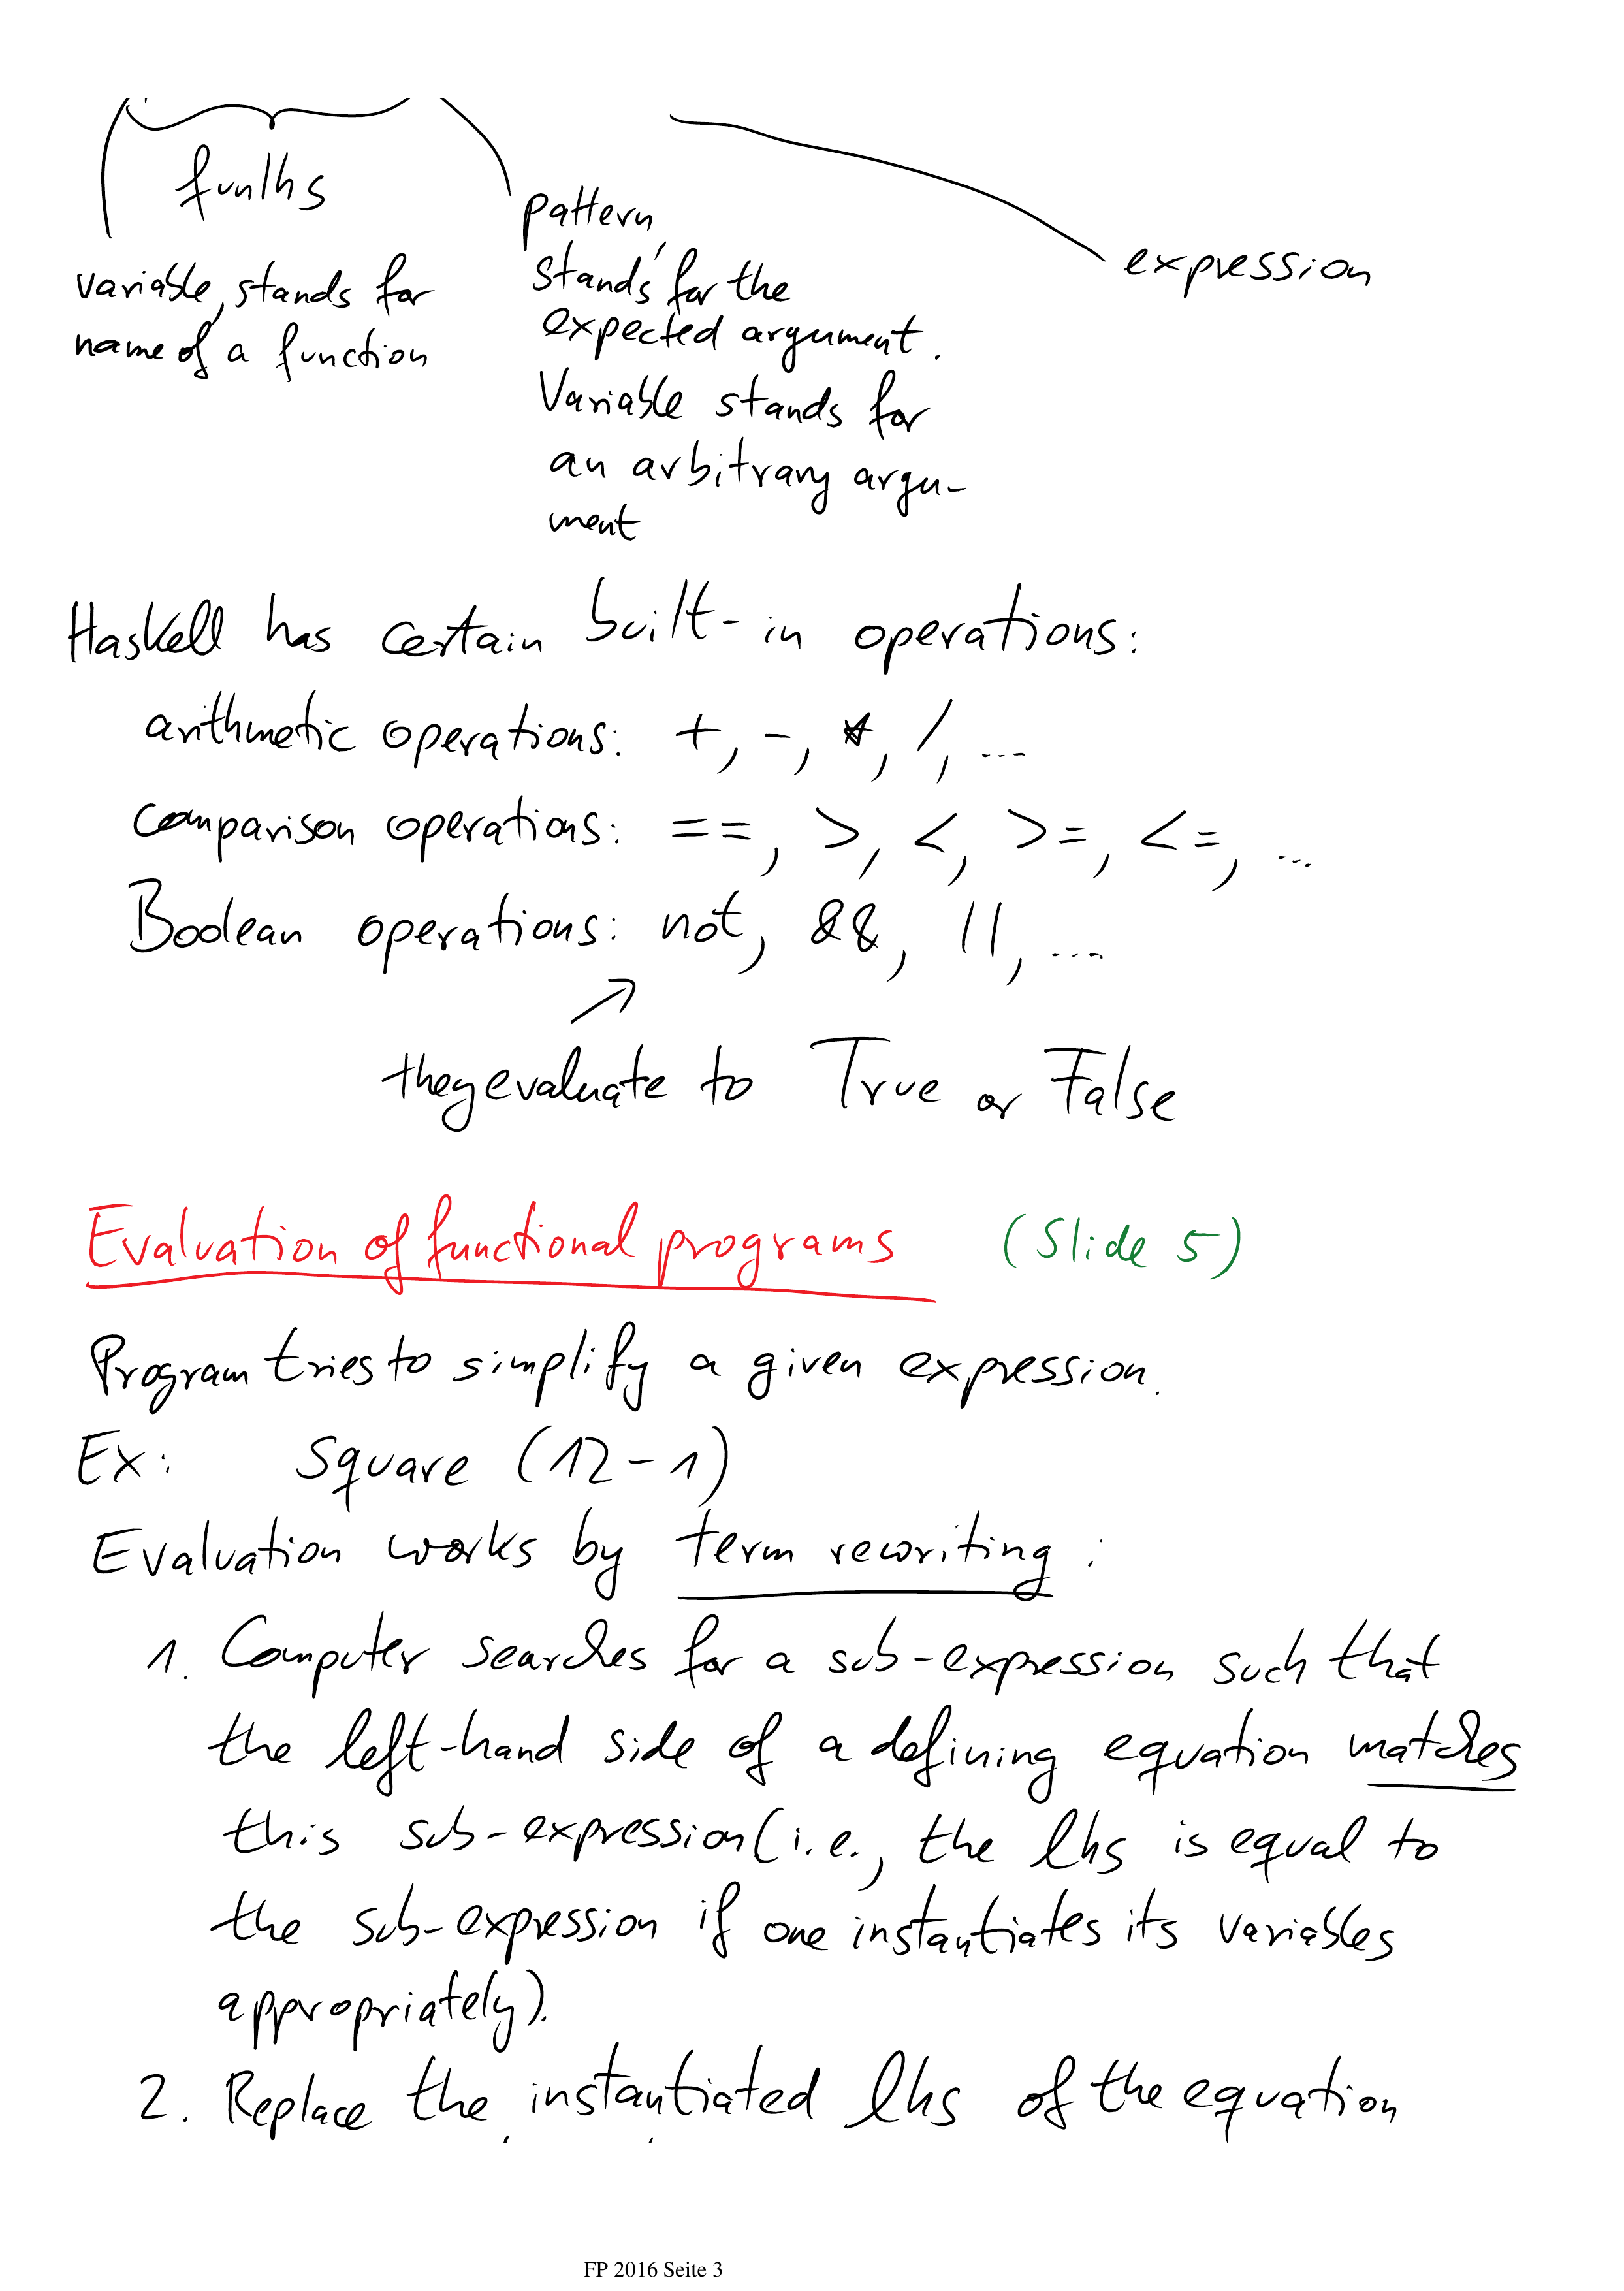 funlhs
pattern,
stands for the
expected argument.
Variable stands for
an arbitrary argu-
ment
variable, stands for
name of a function
expression
Haskell has certain built-in operations:
arithmetic operations: +, -, *, /, ...
comparison operations: ==, >, <, >=, <=, ...
Boolean operations: not, &&, ||, ...
they evaluate to True or False
Evaluation of functional programs (Slide 5)
Program tries to simplify a given expression.
Ex: square (12-1)
Evaluation works by term rewriting:
1. Computer searches for a sub-expression such that
the left-hand side of a defining equation matches
this sub-expression (i.e., the lhs is equal to
the sub-expression if one instantiates its variables
appropriately).
2. Replace the instantiated lhs of the equation
FP 2016 Seite 3